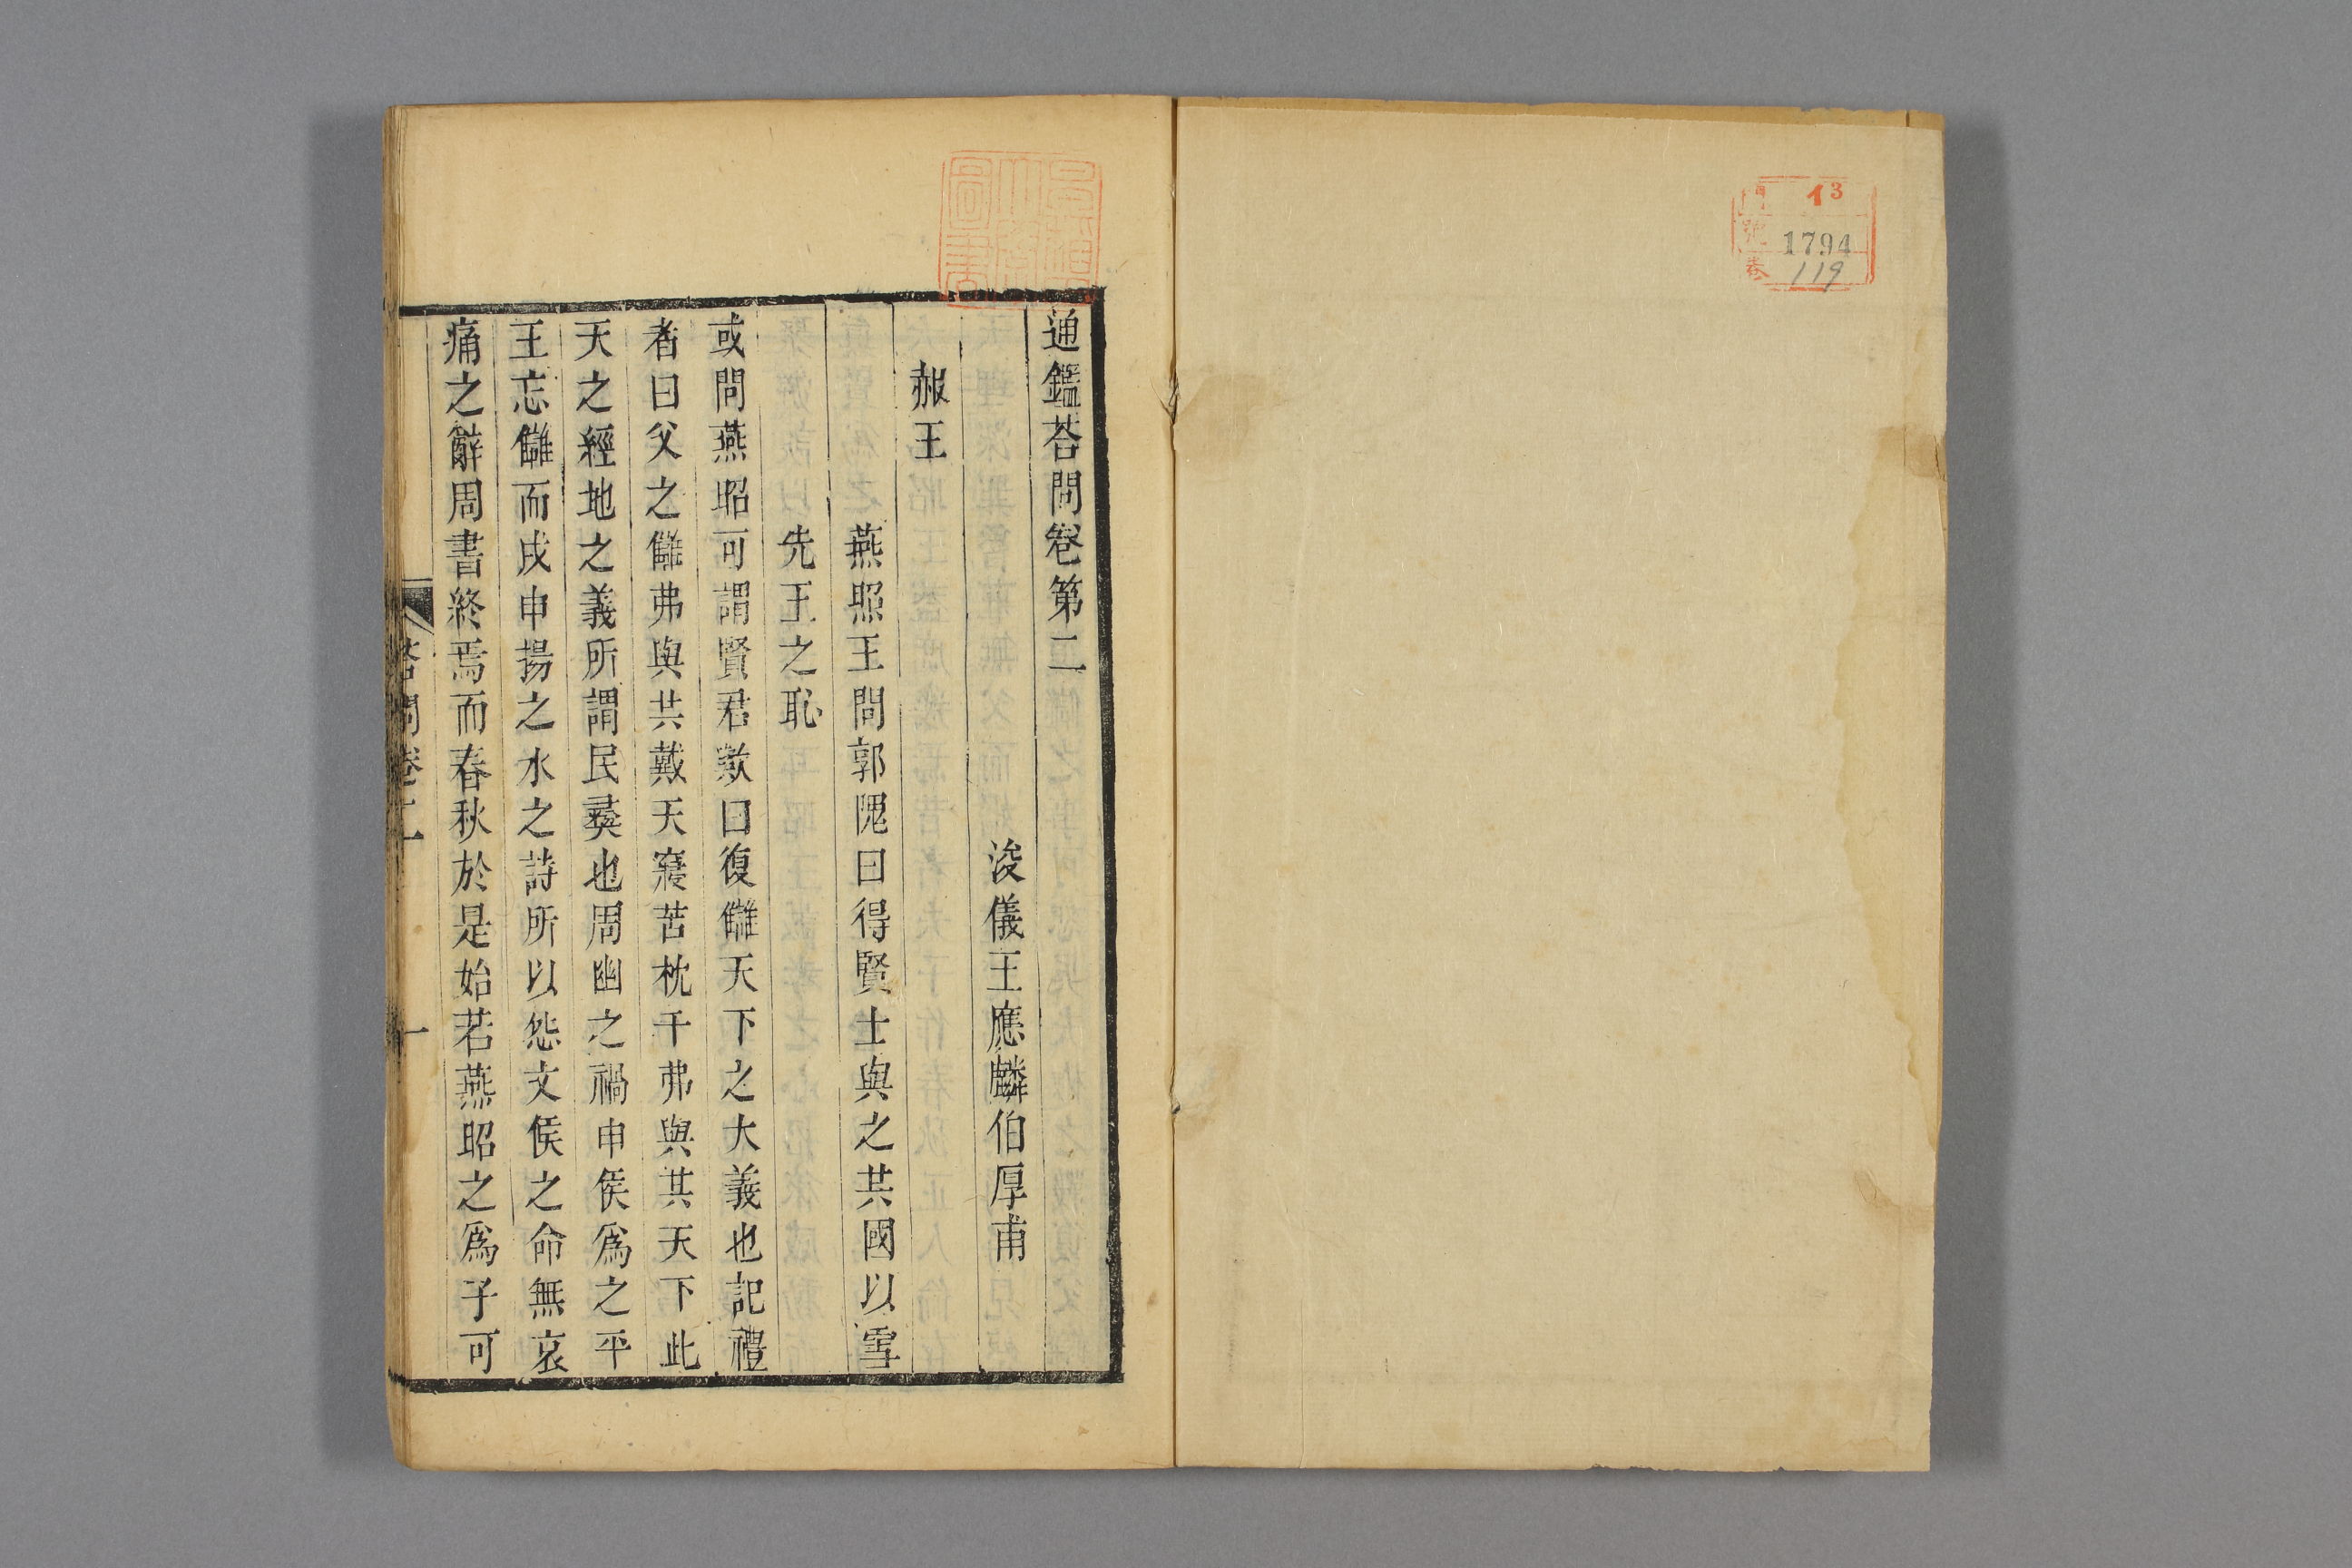 13
1794
119
通鑑荅問卷第二
浚儀王應麟伯厚甫
赧王
燕照王問郭隗曰得賢士與之共國以雪
先王之恥
或問燕昭可謂賢君歟曰復讎天下之大義也記禮
者曰父之讎弗與共戴天寢苫枕干弗與共天下此
天之經地之義所謂民彞也周幽之禍申侯為之平
王忘讎而戍申揚之水之詩所以怨文侯之命無哀
痛之辭周書終焉而春秋於是始若燕昭之為子可
荅問卷二
一